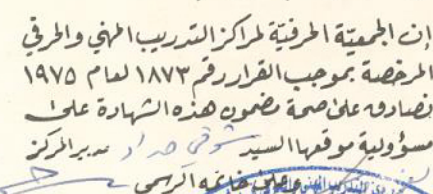 إن الجمعيّة الحرفيّة لمراكز التدريب المهني والحرفي
المرخصة بموجب القرار رقم ١٨٧٣ لعام ١٩٧٥
تصادق على صحة مضمون هذه الشهادة على
مسؤولية موقعها السيد شوقي حداد مدير المركز
وعلى خاتمه الرسمي